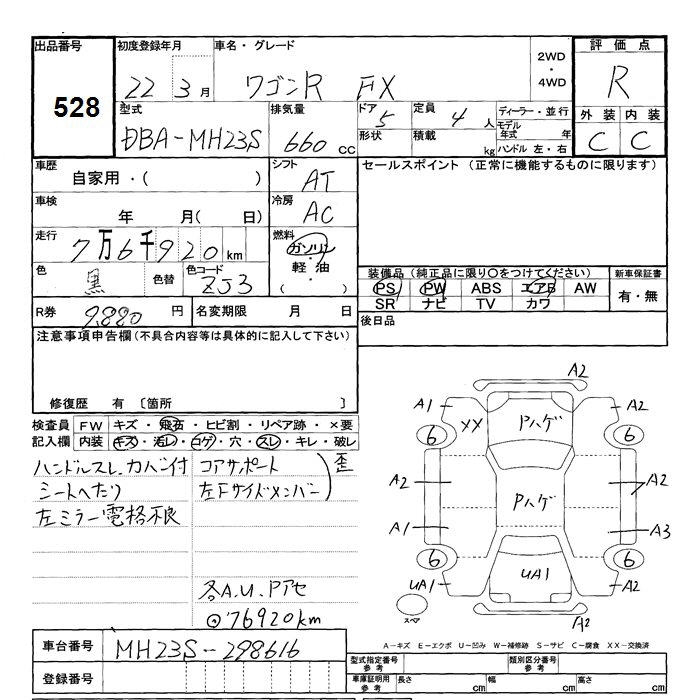 出品番号 初度登録年月 車名・グレード 評価点
528 22 3月 ワゴンR FX 2WD ・ 4WD R
型式 排気量 ドア 定員 ディーラー・並行 外装 内装
DBA-MH23S 660 cc 5 4人 モデル年式 年 C C
形状 積載 kg ハンドル 左・右
車歴 シフト セールスポイント (正常に機能するものに限ります)
自家用・( ) AT
車検 冷房
年 月( 日) AC
走行 燃料
7万6千920km ガソリン・軽油・( )
色 色替 色コード 装備品 (純正品に限り〇をつけてください) 新車保証書
黒 ZJ3 PS PW ABS エアB AW 有・無
SR ナビ TV カワ
R券 9,880円 名変期限 月 日 後日品
注意事項申告欄 (不具合内容等は具体的に記入して下さい)
修復歴 有 〔箇所 〕
検査員 FW キズ・飛石・ヒビ割・リペア跡・×要
記入欄 内装 キズ・汚レ・コゲ・穴・スレ・キレ・破レ
ハンドルスレ、カバン付 コアサポート 歪
シートへたり 左Fサイドメンバー
左ミラー電格不良
各A.U.Pアセ
◎76920km
A2
A1 XX Pハゲ A2
6 6
A2 A2
Pハゲ
A1 A3
6 6
UA1 UA1 A2
スペア A2
A-キズ E-エクボ U-凹み W-補修跡 S-サビ C-腐食 XX-交換済
車台番号 MH23S-298616
型式指定番号 参考 類別区分番号 参考
登録番号 車庫証明用 参考 長さ cm 幅 cm 高さ cm